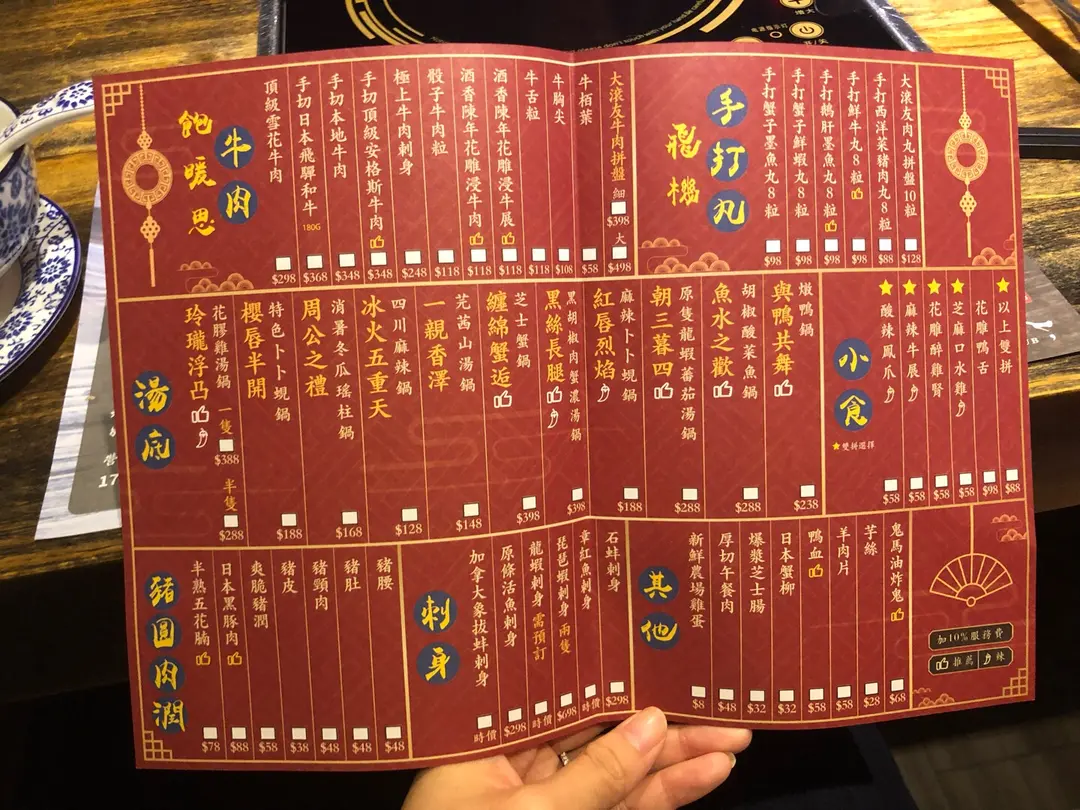 飽暖思
牛肉
頂級雪花牛肉 $298
手切日本飛驒和牛 180G $368
手切本地牛肉 $348
手切頂級安格斯牛肉 $348
極上牛肉刺身 $248
骰子牛肉粒 $118
酒香陳年花雕浸牛肉 $118
酒香陳年花雕浸牛展 $118
牛舌粒 $118
牛胸尖 $108
牛栢葉 $58
大滾友牛肉拼盤 細 $398 大 $498
飛機
手打丸
手打蟹子墨魚丸8粒 $98
手打蟹子鮮蝦8粒 $98
手打鵝肝墨魚丸8粒 $98
手打鮮牛丸8粒 $98
手打西洋菜豬肉丸8粒 $88
大滾友肉丸拼盤10粒 $128
湯底
玲瓏浮凸
花膠雞湯鍋 一隻 $388 半隻 $288
櫻唇半開
特色卜卜蜆鍋 $188
周公之禮
消暑冬瓜瑤柱鍋 $168
冰火五重天
四川麻辣鍋 $128
一親香澤
芫茜山湯鍋 $148
纏綿蟹逅
芝士蟹鍋 $398
黑絲長腿
黑胡椒肉蟹濃湯鍋 $398
紅唇烈焰
麻辣卜卜蜆鍋 $188
朝三暮四
原隻龍蝦蕃茄湯鍋 $288
魚水之歡
胡椒酸菜魚鍋 $288
與鴨共舞
燉鴨鍋 $238
小食
★雙拼選擇
★酸辣鳳爪 $58
★麻辣牛展 $58
★花雕醉雞腎 $58
★芝麻口水雞 $58
花雕鴨舌 $98
★以上雙拼 $88
豬圓肉潤
半熟五花腩 $78
日本黑豚肉 $88
爽脆豬潤 $58
豬皮 $38
豬頸肉 $48
豬肚 $48
豬腰 $48
刺身
加拿大象拔蚌刺身 時價
原條活魚刺身 $298
龍蝦刺身 需預訂 時價
琵琶蝦刺身 兩隻 $698
章紅魚刺身 時價
石蚌刺身 $298
其他
新鮮農場雞蛋 $8
厚切午餐肉 $48
爆漿芝士腸 $32
日本蟹柳 $32
鴨血 $58
羊肉片 $58
芋絲 $28
鬼馬油炸鬼 $68
加10%服務費
推薦 辣